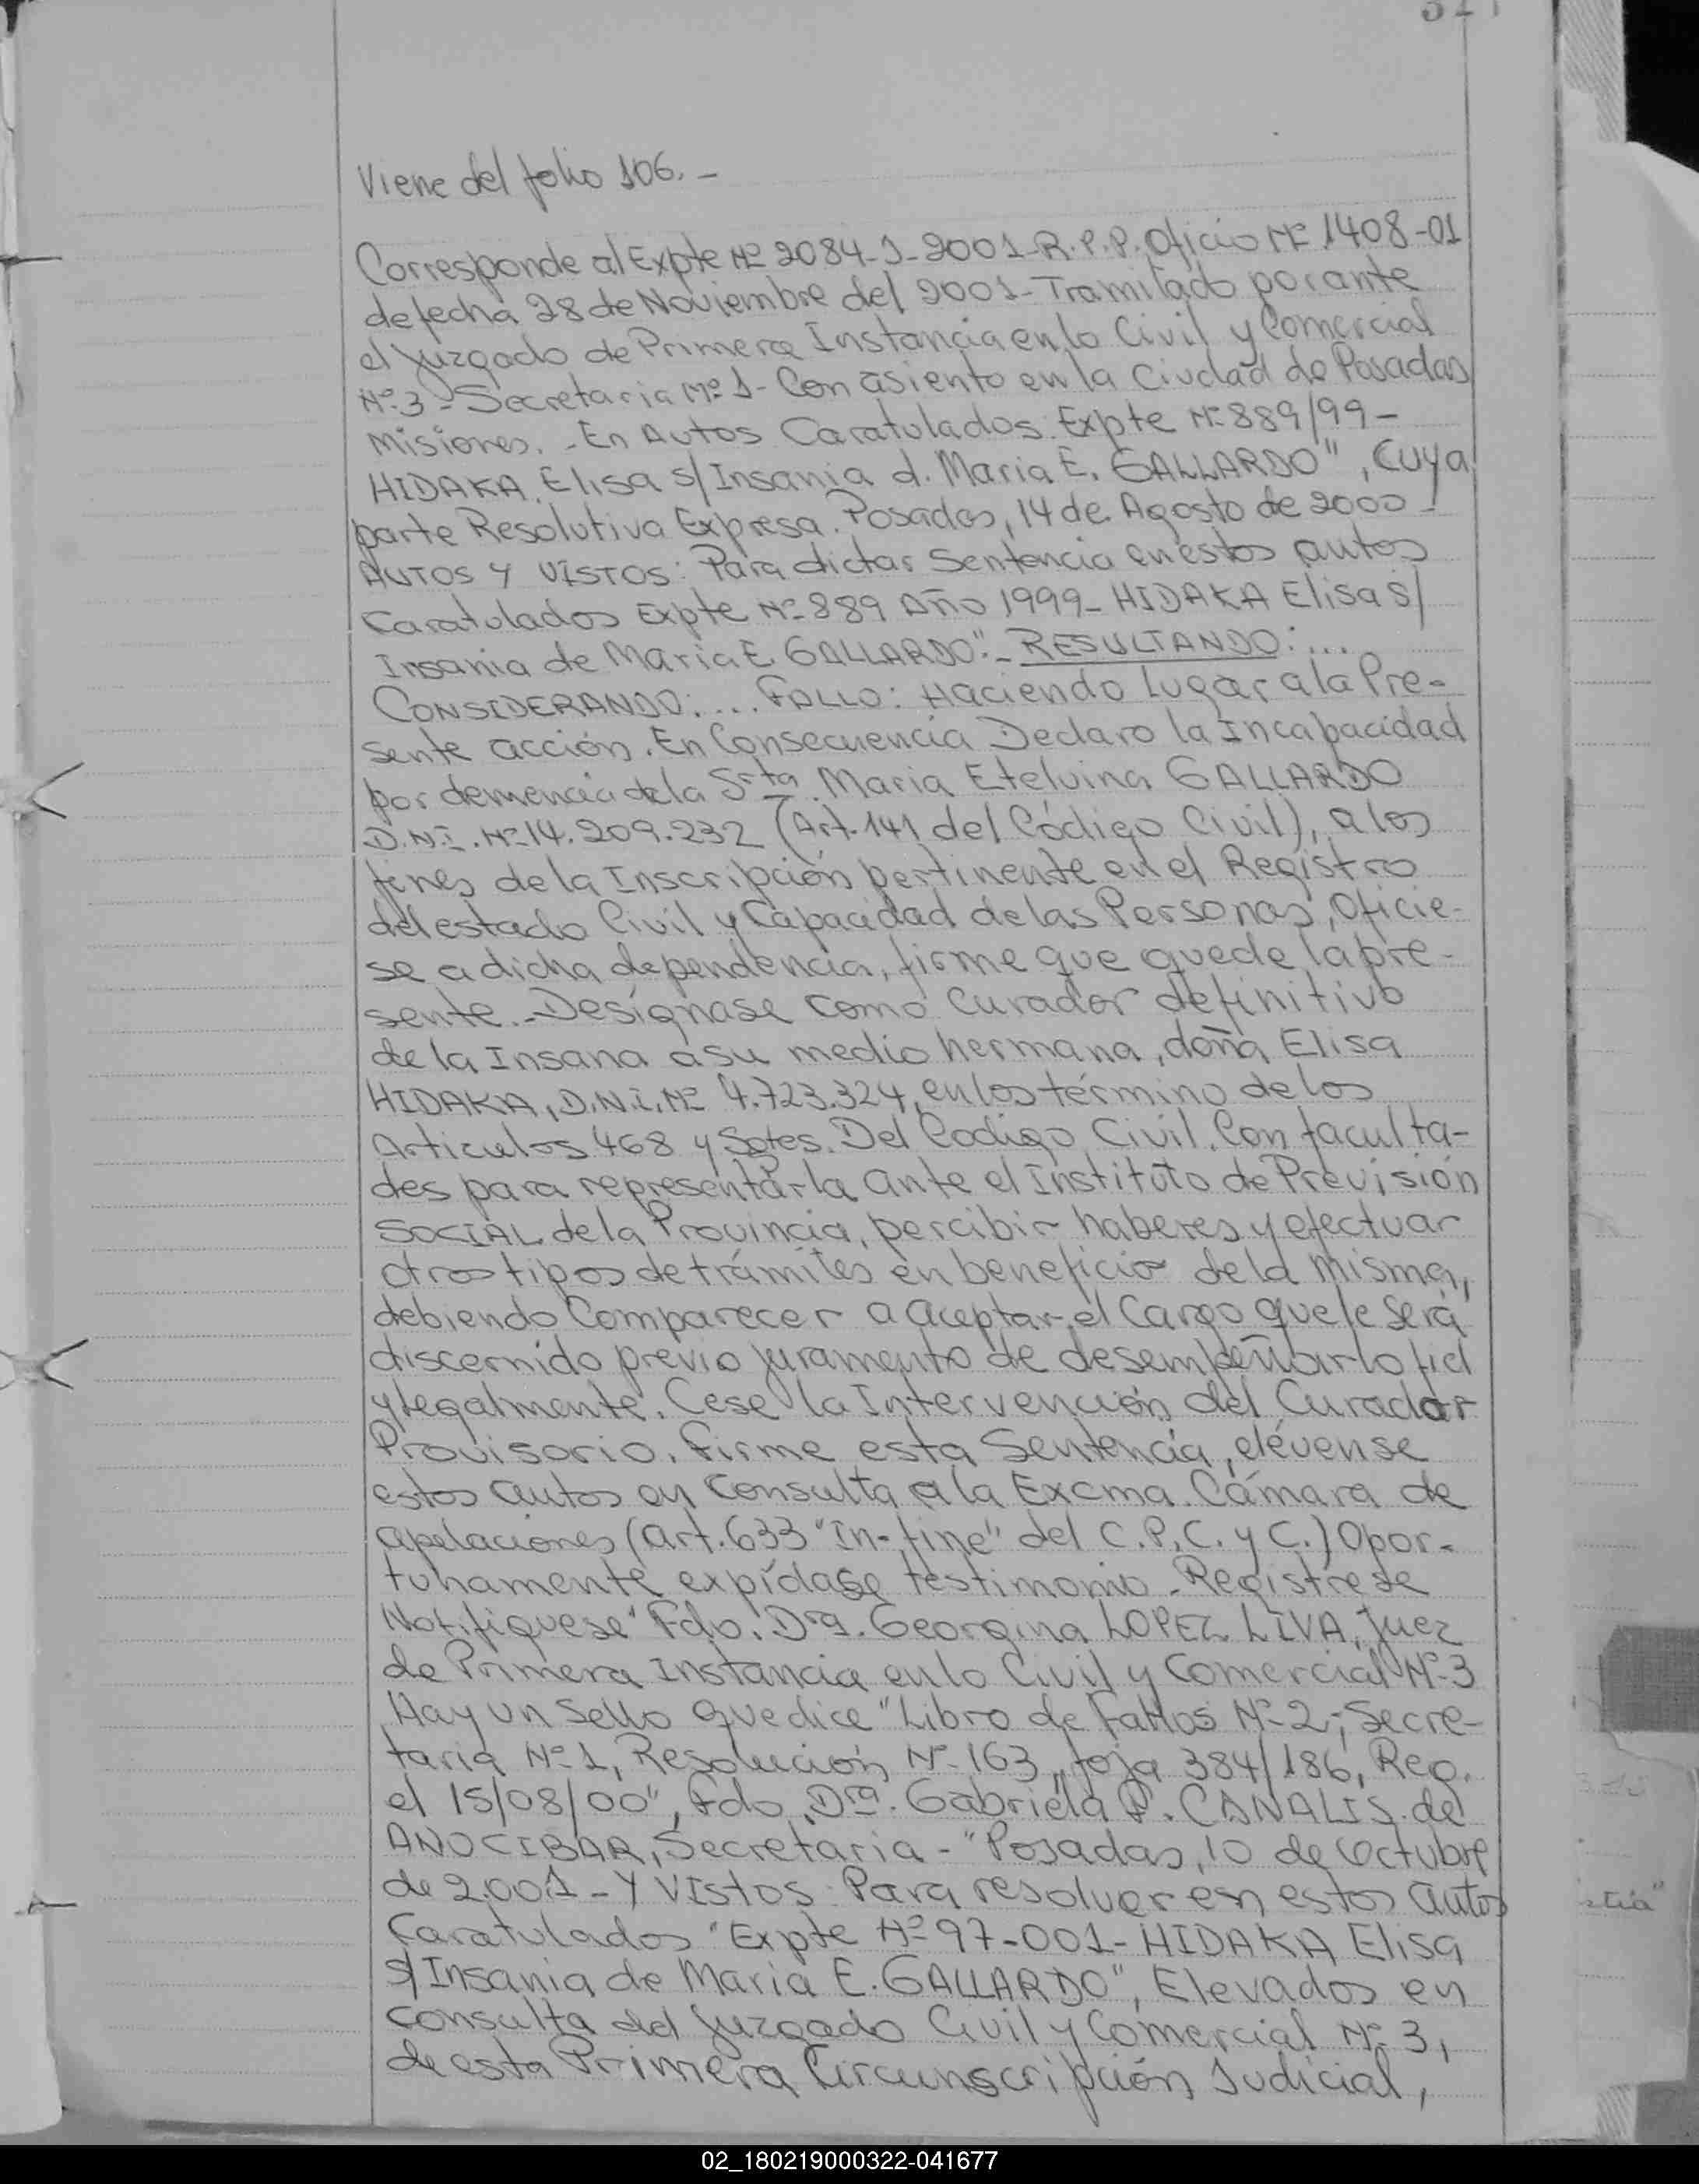 Viene del folio 106.-
Corresponde al Expte Nº 2084-J-2001-R.P.P. Oficio Nº 1408-01
de fecha 28 de Noviembre del 2001- Tramitado por ante
el Juzgado de Primera Instancia en lo Civil y Comercial
Nº-3- Secretaria Nº 1- Con asiento en la Ciudad de Posadas
Misiones.- En Autos Caratulados: Expte Nº 889/99-
HIDAKA, Elisa s/Insania d. Maria E. GALLARDO", Cuya
parte Resolutiva Expresa. Posadas, 14 de Agosto de 2000-
AUTOS Y VISTOS: Para dictar Sentencia en estos autos
Caratulados Expte Nº-889 Año 1999- HIDAKA Elisa s/
Insania de Maria E GALLARDO".- RESULTANDO:...
CONSIDERANDO:... FALLO: Haciendo lugar a la Pre-
sente acción. En Consecuencia Declaro la Incapacidad
por demencia de la Srta. Maria Etelvina GALLARDO
D.N.I. Nº-14.209.232 (Art. 141 del Código Civil), a los
fines de la Inscripción pertinente en el Registro
del estado Civil y Capacidad de las Personas, Oficie-
se a dicha dependencia, firme que quede la pre-
sente.- Desígnase como Curador definitivo
de la Insana a su medio hermana, doña Elisa
HIDAKA, D.N.I. Nº 4.723.324, en los término de los
Articulos 468 y Sgtes. Del Codigo Civil. Con faculta-
des para representarla ante el Instituto de Previsión
SOCIAL de la Provincia, percibir haberes y efectuar
otros tipos de trámites en beneficio de la misma,
debiendo Comparecer a aceptar el Cargo que le Será
discernido previo juramento de desempeñarlo fiel
y legalmente. Cese la Intervención del Curador
Provisorio. Firme esta Sentencia, elévense
estos autos en Consulta a la Excma. Cámara de
apelaciones (art. 633 "In-fine" del C.P.C. y C.) Opor-
tunamente expídase testimonio-Registrese
Notifiquese" Fdo. Dra. Georgina LOPEZ LIVA, Juez
de Primera Instancia en lo Civil y Comercial Nº-3
Hay un Sello que dice "Libro de Fallos Nº-2; Secre-
taria Nº 1, Resolución Nº-163, foja 384/186, Reg.
el 15/08/00", Fdo. Dra. Gabriela P. CANALIS de
ANOCIBAR, Secretaria - "Posadas, 10 de Octubre
de 2.001- Y VIStos: Para resolver en estos autos
Caratulados "Expte Nº 97-001- HIDAKA Elisa
s/Insania de Maria E. GALLARDO", Elevados en
consulta del Juzgado Civil y Comercial Nº 3,
de esta Primera Circunscripción Judicial,
02_180219000322-041677